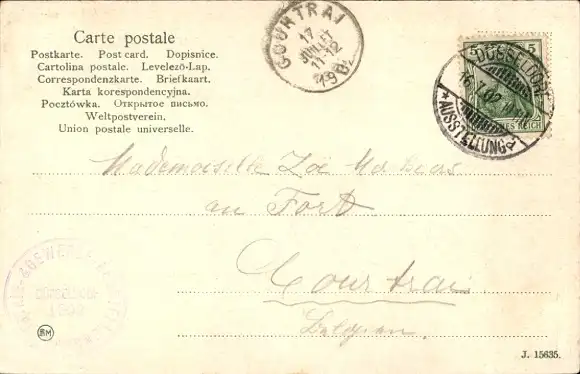 Carte postale
Postkarte. Post card. Dopisnice.
Cartolina postale. Levelező-Lap.
Correspondenzkarte. Briefkaart.
Karta korespondencyjna.
Pocztówka. Открытое письмо.
Weltpostverein.
Union postale universelle.
COURTRAI
17
JUILLET
11-12
190
5 5
DÜSSELDORF
7.02
*AUSSTELLUNG
Mademoiselle Zoë
au Fort
Courtrai
Belgien.
DÜSSELDORF
1902
BM
J. 15635.